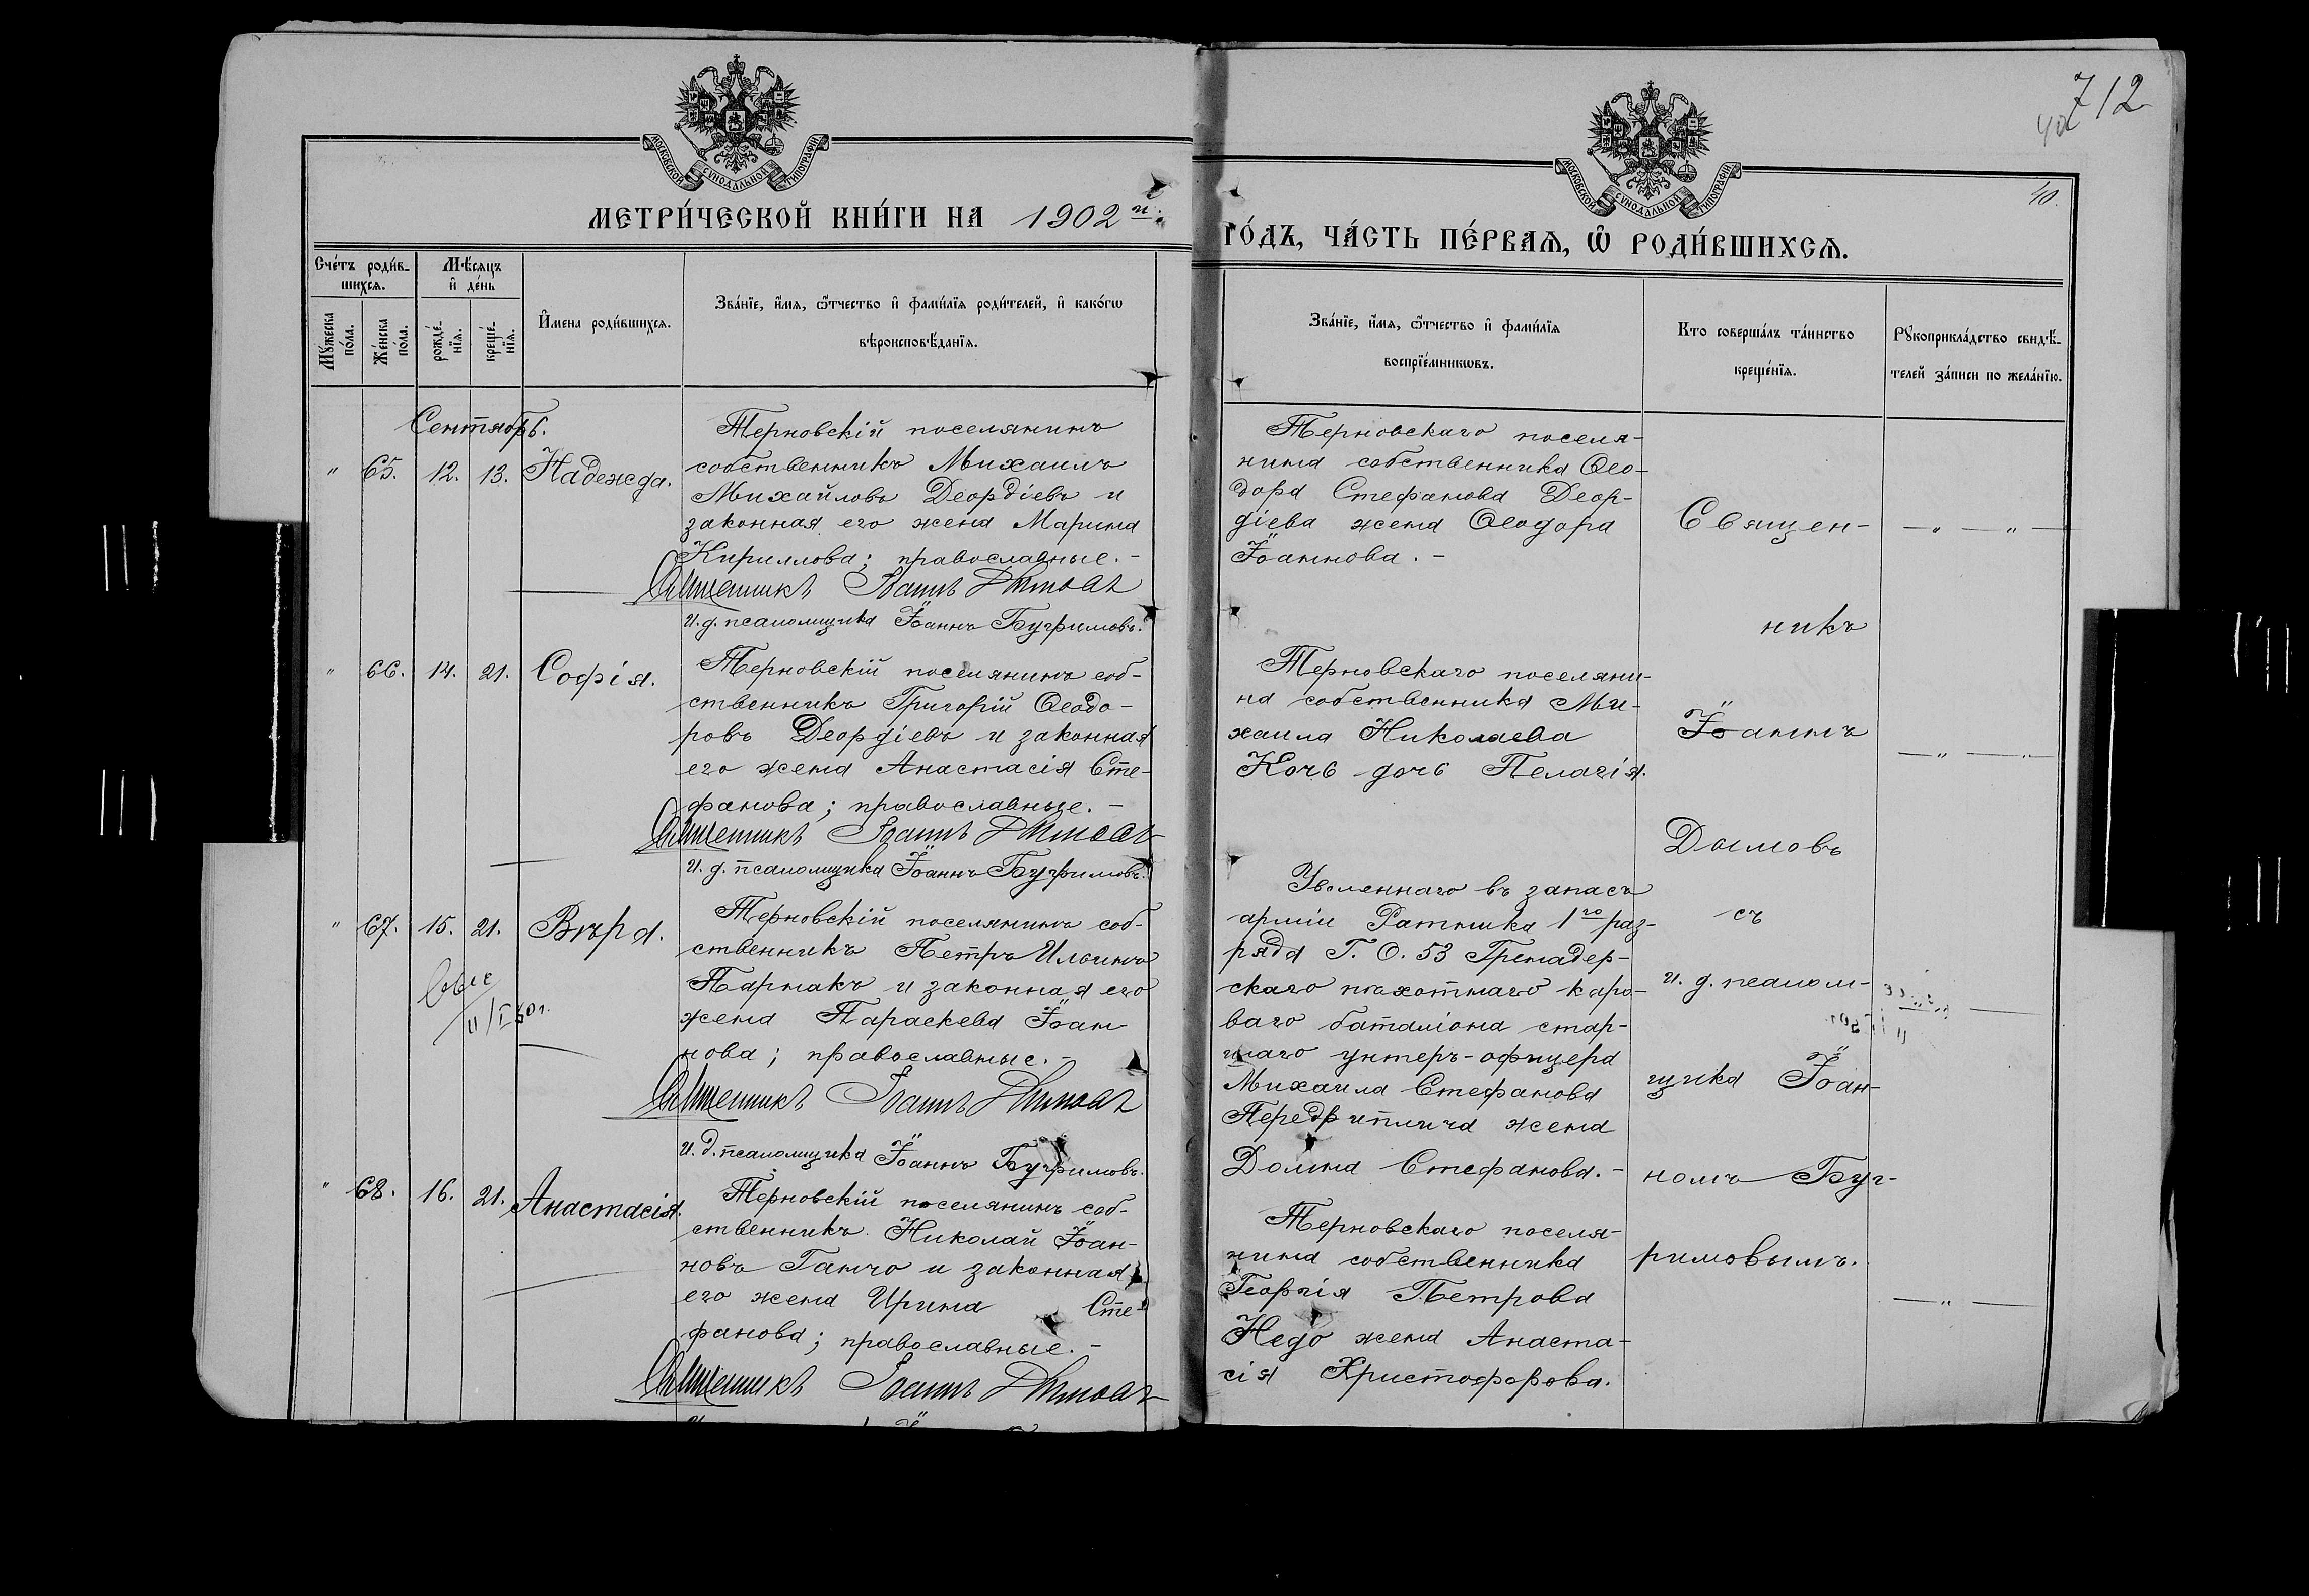 712
40
40.
МОСКОВСКОЙ СѴНОДАЛЬНОЙ ТИПОГРАФІИ
МОСКОВСКОЙ СѴНОДАЛЬНОЙ ТИПОГРАФІИ
МЕТРИ́ЧЕСКОЙ КНИ́ГИ НА 1902й.
ГО́ДЪ, ЧА́СТЬ ПЕ́РВАѦ, Ѡ҆ РОДИ́ВШИХСѦ.
Сче́тъ роди́в-
шихсѧ.
Мꙋ́жеска по́ла.
Же́нска по́ла.
Мѣ́сяцъ
и҆ де́нь
рожде́-
нїѧ.
креще́-
нїѧ.
И҆мена роди́вшихсѧ.
Зва́нїе, и҆́мѧ, ѻ҆́тчество и҆ фами́лїѧ роди́телей, и҆ како́гѡ
вѣроисповѣ́данїѧ.
Зва́нїе, и҆́мѧ, ѻ҆́тчество и҆ фами́лїѧ
воспрїе́мникѡвъ.
Кто соверша́лъ та́инство
креще́нїѧ.
Рꙋкоприкла́дство свидѣ́-
телей за́писи по жела́нїю.
Сентябрь.
" 65. 12. 13. Надежда.
Терновскій поселянинъ
собственникъ Михаилъ
Михайловъ Деордіевъ и
законная его жена Марина
Кириллова; православные. -
Священникъ Іоаннъ Дымовъ
и. д. псаломщика Іоаннъ Бугримовъ.
Терновскаго поселя-
нина собственника Ѳео-
дора Стефанова Деор-
діева жена Ѳеодора
Іоаннова. -
" 66. 14. 21. Софія.
Терновскій поселянинъ соб-
ственникъ Григорій Ѳеодо-
ровъ Деордіевъ и законная
его жена Анастасія Сте-
фанова; православные. -
Священникъ Іоаннъ Дымовъ
и. д. псаломщика Іоаннъ Бугримовъ.
Терновскаго поселяни-
на собственника Ми-
хаила Николаева
Кочь дочь Пелагія.
" 67. 15. 21. Вѣра.
Терновскій поселянинъ соб-
ственникъ Петръ Ильинъ
Пармакъ и законная его
жена Параскева Іоан
нова; православные. -
Священникъ Іоаннъ Дымовъ
и. д. псаломщика Іоаннъ Бугримовъ.
Уволеннаго въ запасъ
арміи Ратника 1го раз-
ряда Г. О. 53 Гренадер-
скаго пѣхотнаго каро-
ваго баталіона стар-
шаго унтеръ-офицера
Михаила Стефанова
жена
Домна Стефанова. -
" 68. 16. 21. Анастасія.
Терновскій поселянинъ соб-
ственникъ Николай Іоан-
новъ Ганчо и законная
его жена Ирина Сте-
фанова; православные. -
Священникъ Іоаннъ Дымовъ
Терновскаго поселя-
нина собственника
Георгія Петрова
Недо жена Анаста-
сія Христофорова.
Священ-
никъ
Іоаннъ
Дымовъ
съ
и. д. псалом-
щика Іоан-
номъ Буг-
римовымъ.